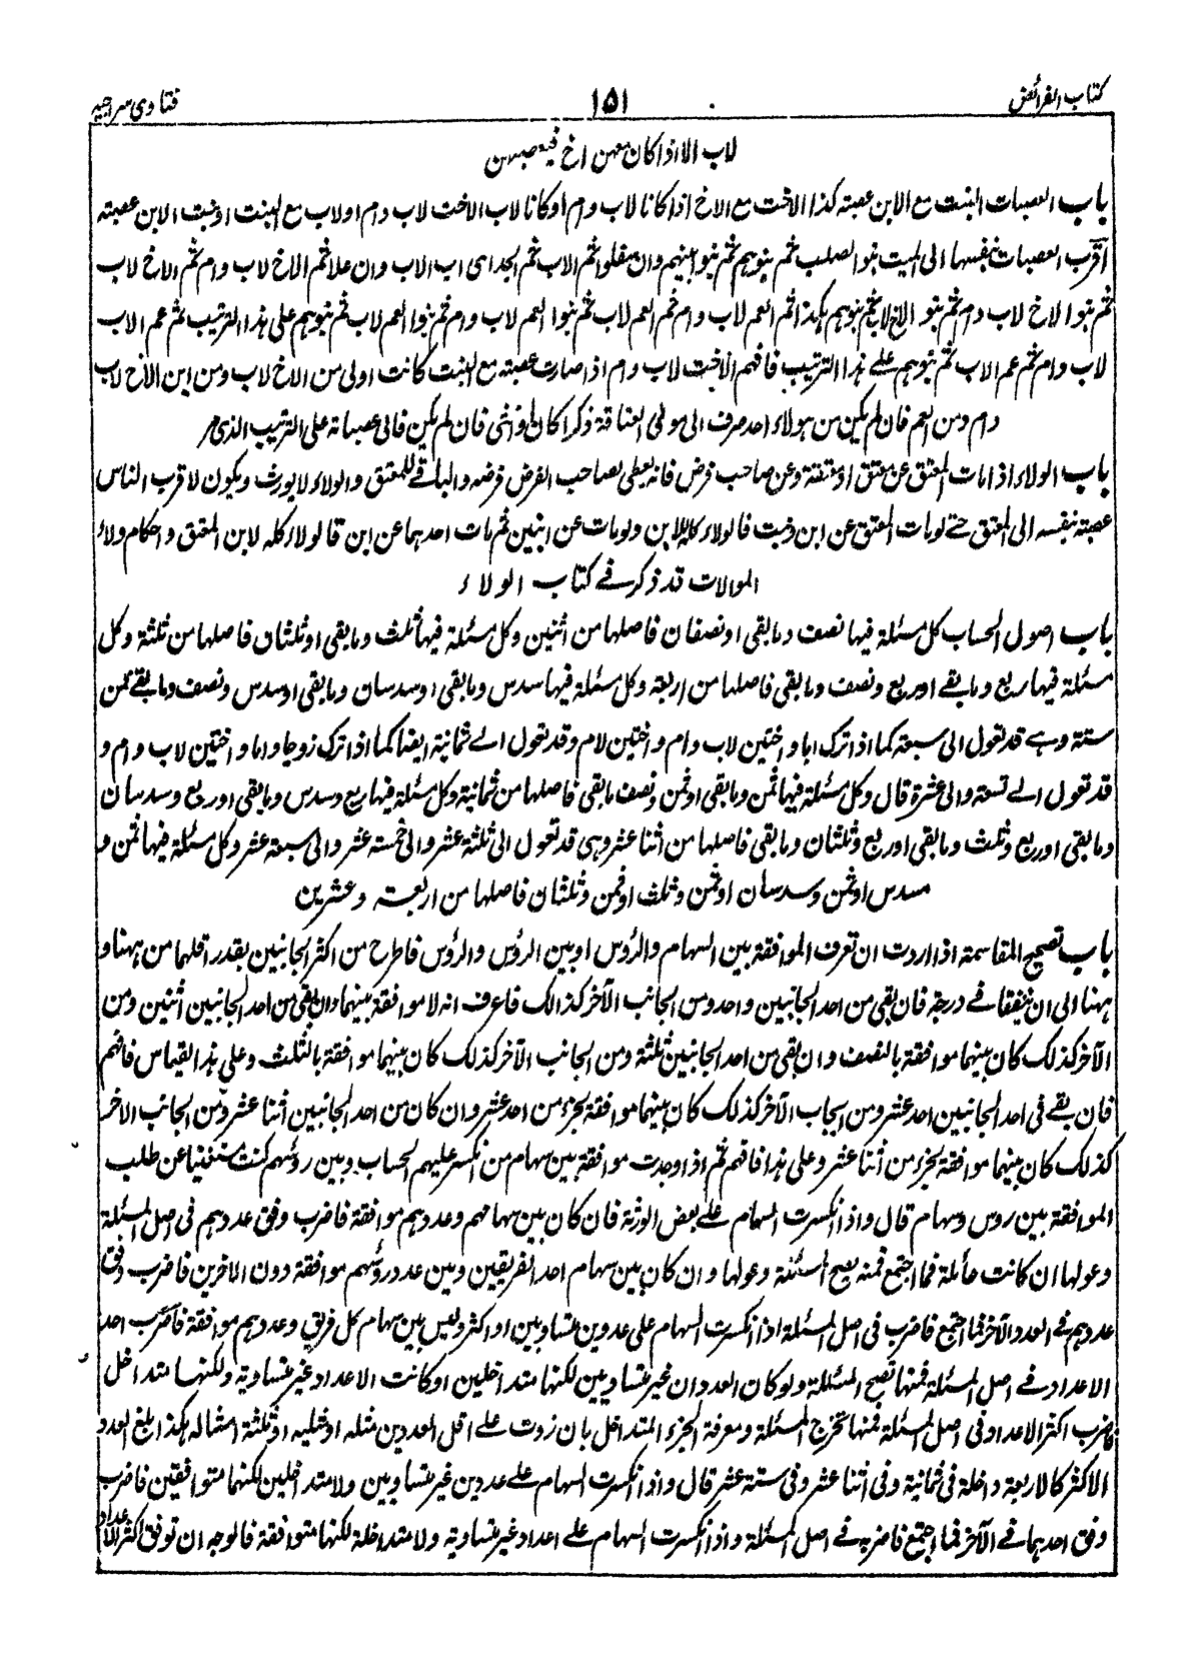 كتاب الفرائض
١٥١
فتاوى سراجيه
لاب الا اذا كان معهن اخ فيعصبهن
باب العصبات البنت مع الابن عصبته كذا الاخت مع الاخ اذا كانا لاب وام او كانا لاب الاخت لاب وام او لاب مع البنت او بنت الابن عصبته
اقرب العصبات بنفسها الى الميت بنو الصلب ثم بنوهم ثم بنو بنيهم وان سفلوا ثم الاب ثم الجد اى اب الاب وان علا ثم الاخ لاب وام ثم الاخ لاب
ثم بنوا الاخ لاب وام ثم بنو الاخ لاب ثم بنوهم هكذا ثم العم لاب وام ثم العم لاب ثم بنوا العم لاب وام ثم بنوا العم لاب ثم بنوهم على هذا الترتيب ثم عم الاب
لاب وام ثم عم الاب ثم بنوهم على هذا الترتيب فافهم الاخت لاب وام اذا صارت عصبته مع البنت كانت اولى من الاخ لاب ومن ابن الاخ لاب
وام ومن العم فان لم يكن من هولاء احد صرف الى مولى العتاقة ذكرا كان او انثى فان لم يكن فالى عصباته على الترتيب الذى مر
باب الولاء اذا مات المعتق عن معتق او معتقة وعن صاحب فرض فانه يعطى لصاحب الفرض فرضه والباقى للمعتق والولاء لا يورث ويكون لاقرب الناس
عصبته بنفسه الى المعتق حتى لو مات المعتق عن ابن وبنت فالولاء كله للابن ولو مات عن ابنين ثم مات احدهما عن ابن فالولاء كله لابن المعتق واحكام ولاء
الموالات قد ذكر فى كتاب الولاء
باب اصول الحساب كل مسئلة فيها نصف وما بقى او نصفان فاصلها من اثنين وكل مسئلة فيها ثلث وما بقى او ثلثان فاصلها من ثلثة وكل
مسئلة فيها ربع وما بقے او ربع ونصف وما بقى فاصلها من اربعة وكل مسئلة فيها سدس وما بقى او سدسان وما بقى او سدس ونصف وما بقے فمن
ستة وهے قد تعول الى سبعة كما اذا ترك اما واختين لاب وام واختين لام وقد تعول الے ثمانية ايضا كما اذا ترك زوجا واما واختين لاب وام و
قد تعول الے تسعة والى عشرة قال وكل مسئلة فيها ثمن وما بقى او ثمن ونصف ما بقى فاصلها من ثمانية وكل مسئلة فيها ربع وسدس وما بقى او ربع وسدسان
وما بقى او ربع وثلث وما بقى او ربع وثلثان وما بقى فاصلها من اثنا عشر وهى قد تعول الى ثلثة عشر والى خمسة عشر والى سبعة عشر وكل مسئلة فيها ثمن و
سدس او ثمن وسدسان او ثمن وثلث او ثمن وثلثان فاصلها من اربعة وعشرين
باب تصحيح المقاسمة اذا اردت ان تعرف الموافقة بين السهام والرؤس او بين الرؤس والرؤس فاطرح من اكثر الجانبين بقدر اقلهما من ههنا و
ههنا والى ان يتفقا فے درجة فان بقى من احد الجانبين واحد ومن الجانب الآخر كذالك فاعرف انه لا موافقة بينهما وان بقى من احد الجانبين اثنين ومن
الآخر كذلك كان بينهما موافقة بالنصف وان بقى من احد الجانبين ثلثة ومن الجانب الآخر كذلك كان بينهما موافقة بالثلث وعلى هذا القياس فافهم
فان بقے فى احد الجانبين احد عشر ومن الجاب الآخر كذلك كان بينهما موافقة الجزء من احد عشر وان كان من احد الجانبين اثنا عشر ومن الجانب الاخر
كذلك كان بينهما موافقة الجزء من اثنا عشر وعلى هذا فافهم ثم اذا وجدت موافقة بين سهام من انكسر عليهم الحساب وبين روسهم كنت مستغنيا عن طلب
الموافقة بين روس وسهام قال واذا انكسرت السهام على بعض الورثة فان كان بين سهامهم وعددهم موافقة فاضرب وفق عددهم فى اصل المسئلة
وعولها ان كانت عائلة فما اجتمع فمنه يصح المسئلة وعولها وان كان بين سهام احد الفريقين وبين عدد رؤسهم موافقة دون الاخرين فاضرب وفق
عددهم فى العدد الآخر فما اجتمع فاضرب فى اصل المسئلة اذا انكسرت السهام على عددين متساويين او اكثر وليس بين سهام كل فريق وعددهم موافقة فاضرب احد
الاعداد فے اصل المسئلة فمنها تصح المسئلة ولو كان العددان غير متساويين لكنها متداخلين او كانت الاعداد غير متساوية ولكنها متداخل
فاضرب اكثر الاعداد فى اصل المسئلة فمنها تخرج المسئلة ومعرفة الجزء المتداخل بان زوت على اقل العددين مثله او مثليه او ثلثة امثاله هكذا ابلغ العدد
الاكثر كالاربعة داخلة فى ثمانية وفى اثنا عشر وفى ستة عشر قال واذا انكسرت السهام على عددين غير متساويين ولا متداخلين لكنهما متوافقين فاضرب
وفق احدهما فے الآخر فما اجتمع فاضربه فے اصل المسئلة واذا انكسرت السهام على اعداد غير متساوية ولا متداخلة لكنها متوافقة فالوجه ان توفق اكثر الاعداد